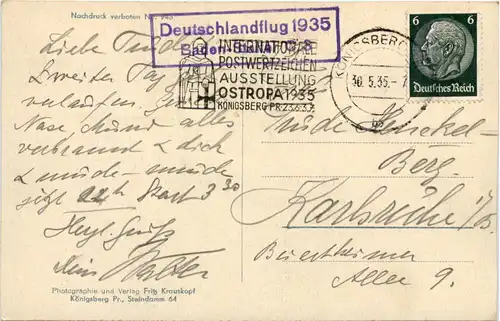 Nachdruck verboten Nr. 943
Deutschlandflug 1935
Baden-Baden
INTERNATIONALE
POSTWERTZEICHEN
AUSSTELLUNG
OSTROPA 1935
KÖNIGSBERG PR. 23.6.-3.7.
KÖNIGSBERG
30.5.35.-7
6 6
Deutsches Reich
Liebe Trude
Zweiter Tag
verlaufen.
Nase, Mund alles
verbrannt & ich
& müde - müde
jetzt Start 3 30
Herzl. Grüße
Dein Walter
Trude Henckel-
Berg.
Karlsruhe i/B.
Beiertheimer
Allee 9.
Photographie und Verlag Fritz Krauskopf
Königsberg Pr., Steindamm 64